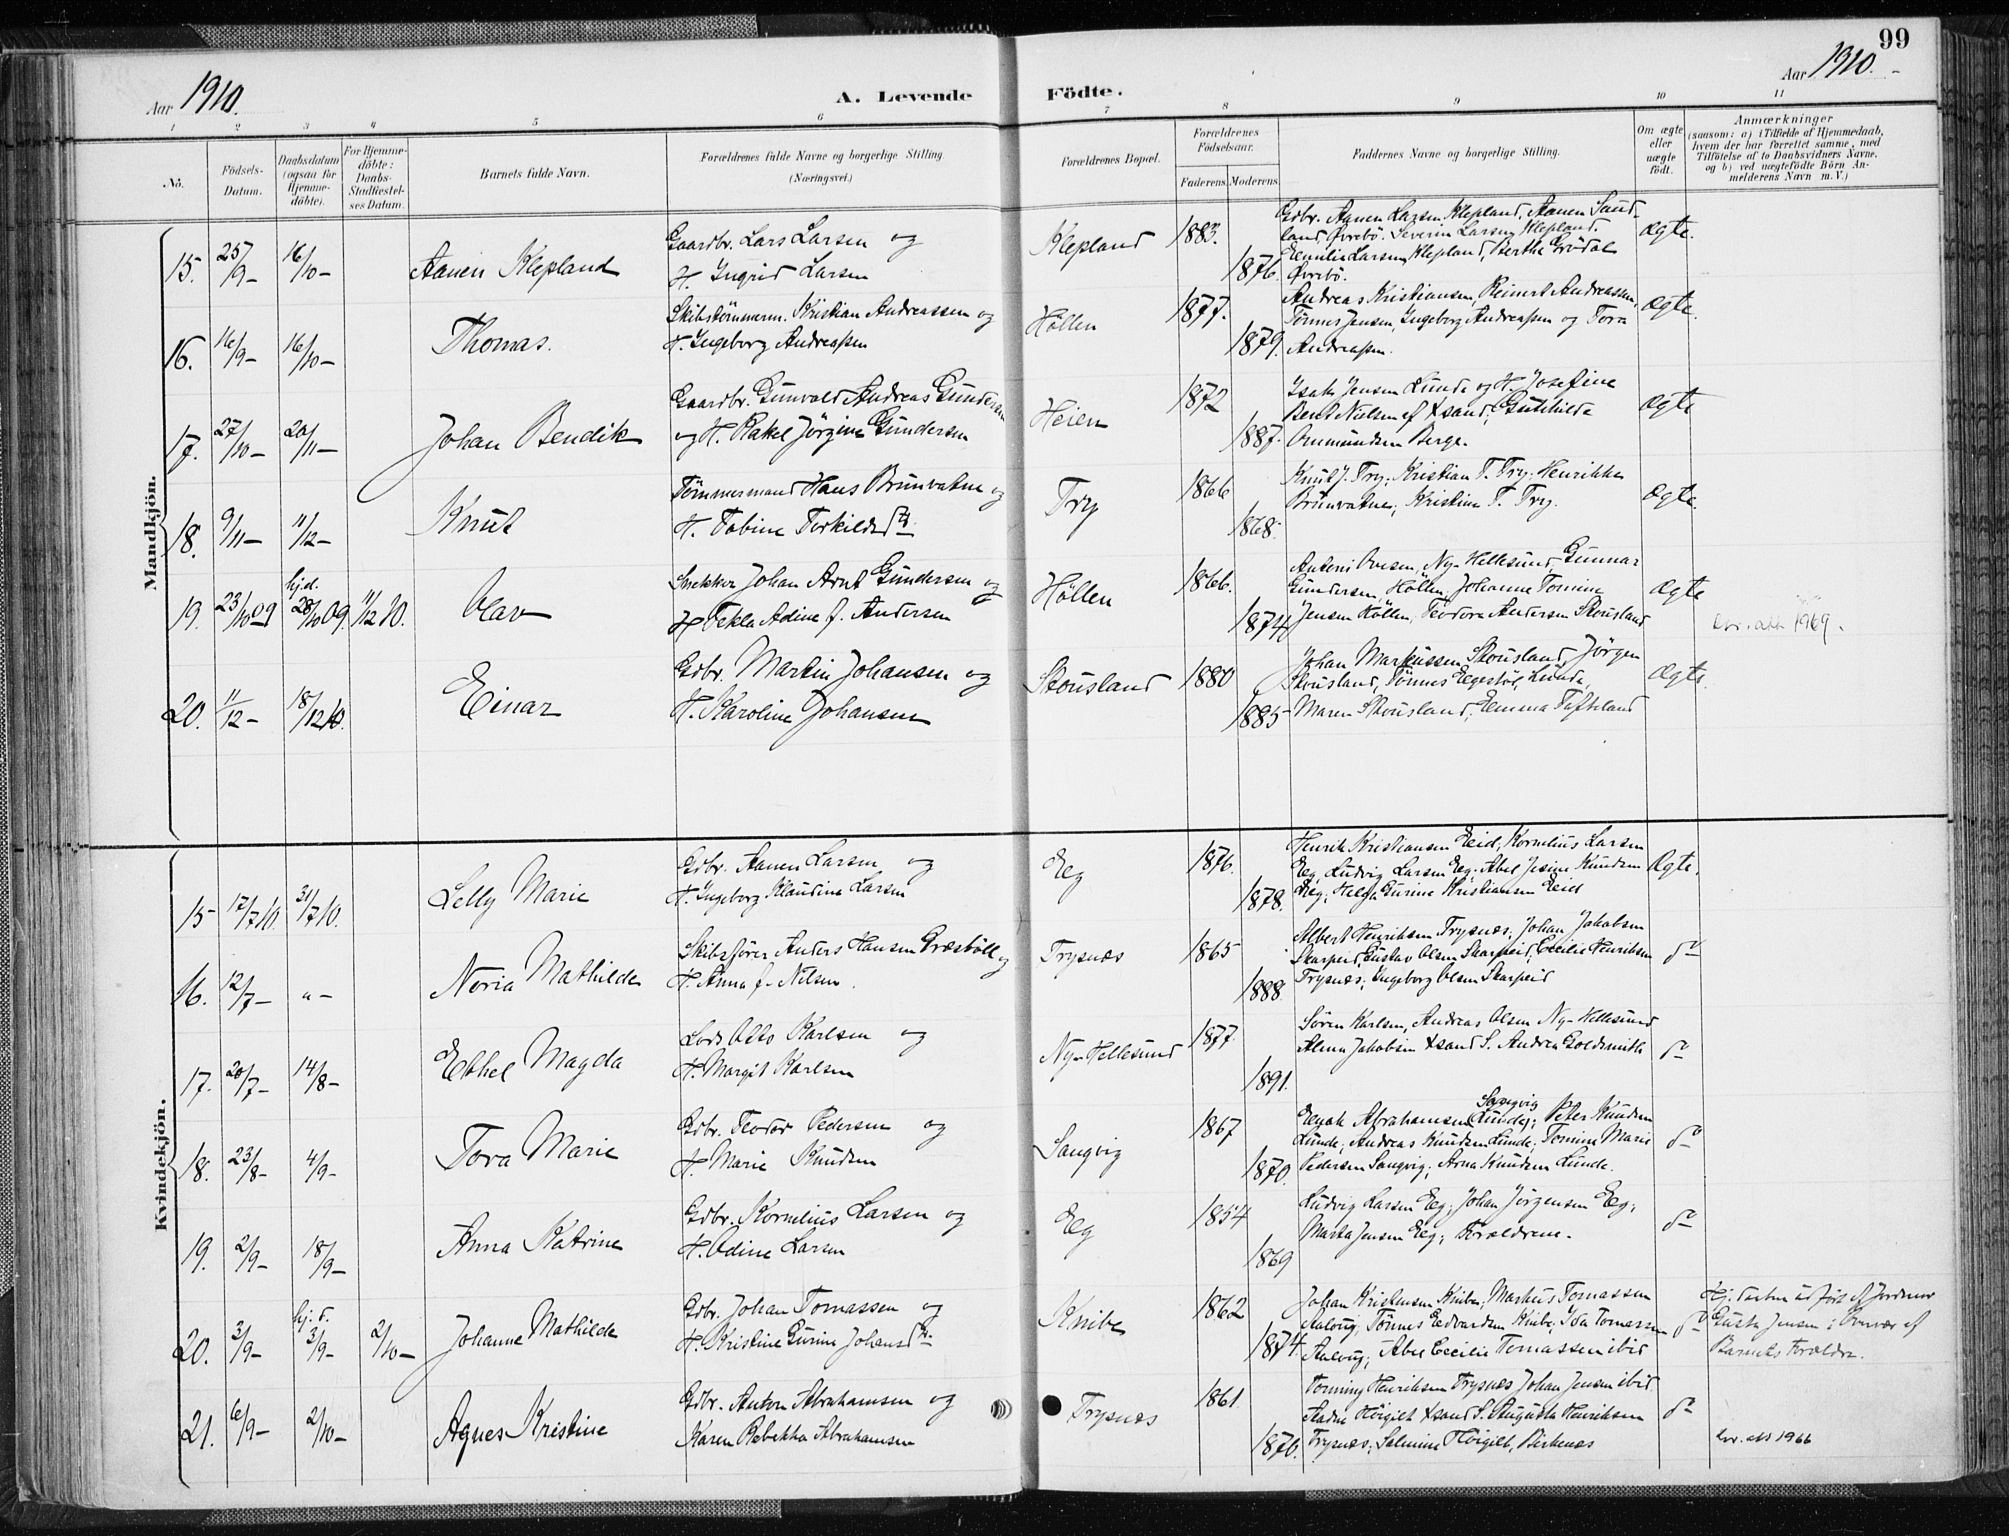 99
Aar 1910.
A. Levende Födte.
Aar 1910.
1 2 3 4 5 6 7 8 9 10 11
No.
Födsels-Datum.
Daabsdatum (ogsaa for Hjemme-döbte).
For Hjemme-döbte: Daabs-Stadfæstel-ses Datum.
Barnets fulde Navn.
Forældrenes fulde Navne og borgerlige Stilling (Næringsvei.)
Forældrenes Bopæl.
Forældrenes Födselsaar.
Faderens. Moderens.
Faddernes Navne og borgerlige Stilling.
Om ægte eller uægte födt.
Anmærkninger
(saasom: a) i Tilfælde af Hjemmedaab, hvem der har forrettet samme, med Tilföielse af to Daabsvidners Navne, og b) ved uægtefödte Börn Anmelderens Navn m. V.)
Mandkjön.
15. 25/9- 16/10- Aanen Klepland
Gaardbr. Lars Larsen og
H. Ingrid Larsen
Klepland 1883. 1876.
Gdbr. Aanen Larsen Klepland, Aanen Sand-
land Øvrebö. Severin Larsen Klepland.
Emilie Larsen Klepland, Berthe Grödal
Øvrebö.
ægte.
16. 16/9- 16/10- Thomas.
Skibstømmerm. Kristian Andreassen og
H. Ingeborg Andreassen
Höllen 1877. 1879.
Andreas Kristiansen, Reinert Andreassen,
Tønnes Jensen, Ingeborg Andreassen og Tora
Andreassen.
ægte.
17. 27/10- 20/11- Johan Bendik
Gaardbr. Gunvald Andreas Gundersen
og H. Rakel Jörgine Gundersen
Heien 1872 1887.
Isak Jensen Lunde og H. Josefine
Bent Nielsen af Xsand; Gunhilde
Omundsen Berge.
ægte
18. 9/11- 11/12- Knut
Tømmermand Hans Brunvatne og
H. Tobine Torkildsdt
Try 1866 1868.
Knut J. Try, Kristian T. Try. Henrikke
Brunvatne; Kristine T. Try.
ægte.
19. 23/10 09 hj.d. 28/10 09. 11/12 10. Olav
Snekker Johan Arnt Gundersen og
H Tekla Adine f. Andersen
Höllen 1866. 1874
Ny-Hellesund, Gunnar
Gundersen, Höllen, Johanne Tomine
Jensen Höllen, Teodora Andersen Skousland
ægte
1969.
20. 11/12- 18/12 10. Einar
Gdbr. Martin Johansen og
H. Karoline Johansen
Skousland 1880 1885
Johan Markussen Skousland, Jörgen
Skousland, Tönnes Egestöl, Lunde,
Maren Skousland; Emma Tofteland
ægte.
Kvindekjön.
15 17/7 10. 31/7 10. Lelly Marie
Gdbr. Aanen Larsen og
H. Ingeborg Klaudine Larsen
Eeg 1876. 1878.
Henrik Kristiansen Eeid, Kornelius Larsen
Eeg, Ludvig Larsen Eeg. Abel Jesine Knudsen
Eeg; Helga Gurine Kristiansen Eeid
Ægte.
16. 12/7- "- Noria Mathilde
Skibsfører Anders Hansen Græsböll og
H. Anna f. Nilsen.
Trysnæs 1865 1888.
Albert Henriksen Trysnæs; Johan Jakobsen
Skarpeid, Gustav Olsen Skarpeid, Cecilie Henriksen
Trysnæs; Ingeborg Olsen Skarpeid
do
17. 20/7- 14/8- Ethel Magda
Lods Otto Karlsen og
H. Margit Karlsen
Ny-Hellesund 1877 1891.
Sören Karlsen, Andreas Olsen Ny-Hellesund
Alma Jakobsen Xsand S. Andrea Goldsmith
do
18. 23/8- 4/9- Tora Marie
Gdbr. Teodor Pedersen og
H. Marie Knudsen
Sangvig 1867 1870.
Sangvig
Abrahamsen (Lunde); Peter Knudsen
Lunde; Andreas Knudsen Lunde; Tomine Marie
Pedersen Sangvig; Arna Knudsen Lunde.
do
19. 2/9- 18/9- Anna Katrine
Gdbr. Kornelius Larsen og
H. Odine Larsen
Eeg 1854 1869
Ludvig Larsen Eeg; Johan Jörgensen Eeg;
Marta Jensen Eeg; Forældrene.
do
20. 3/9- hj. d. 3/9- 2/10- Johanne Mathilde
Gdbr. Johan Tomassen og
H. Kristine Gurine Johansdt.
Knibe 1862 1874.
Johan Kristensen Knibe; Markus Tomassen
Aalvug; Tönnes Edvardsen Knibe, Ida Tomassen
Aalvug; Abel Cecilie Tomassen ibid
do
Hj. daaben udført af Jordmor
Gusta Jensen i Overvær af
Barnets Forældre.
21. 6/9- 2/10- Agnes Kristine
Gdbr. Anton Abrahamsen og
Karen Rebekka Abrahamsen
Trysnæs 1861 1876.
Henriksen Trysnæs Johan Jensen ibid.
Aadne Höigilt Xsand S. Augusta Henriksen
Trysnæs; Salmine Höigilt, Birkenæs
do
1966